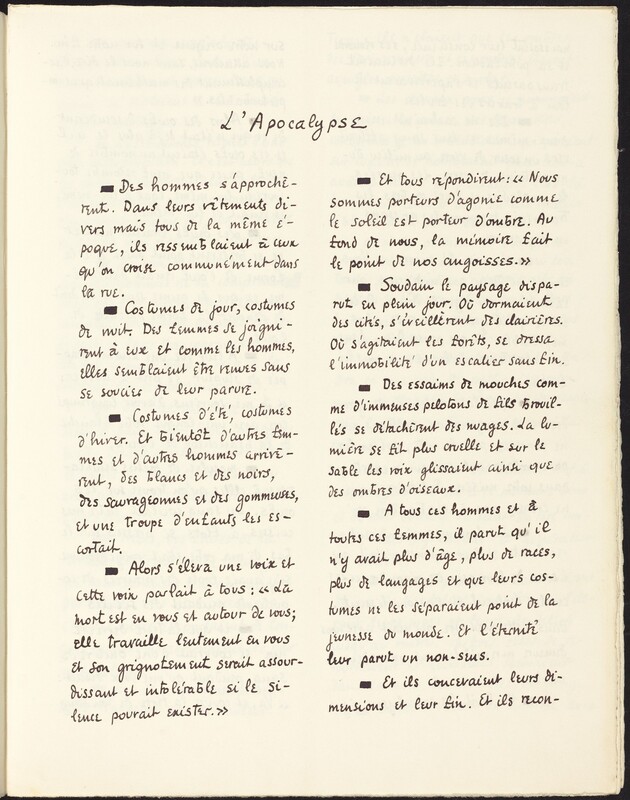 L'Apocalypse
Des hommes s'approchè-
rent. Dans leurs vêtements di-
vers mais tous de la même é-
poque, ils ressemblaient à ceux
qu'on croise communément dans
la rue.
Costumes de jour, costumes
de nuit. Des femmes se joigni-
rent à eux et comme les hommes,
elles semblaient être venues sans
se soucier de leur parure.
Costumes d'été, costumes
d'hiver. Et bientôt d'autres fem-
mes et d'autres hommes arrivè-
rent, des blancs et des noirs,
des sauvageonnes et des gommeuses,
et une troupe d'enfants les es-
cortait.
Alors s'éleva une voix et
cette voix parlait à tous : « La
mort est en vous et autour de vous;
elle travaille lentement en vous
et son grignotement serait assour-
dissant et intolérable si le si-
lence pouvait exister. »
Et tous répondirent : « Nous
sommes porteurs d'agonie comme
le soleil est porteur d'ombre. Au
fond de nous, la mémoire fait
le point de nos angoisses. »
Soudain le paysage dispa-
rut en plein jour. Où dormaient
des cités, s'éveillèrent des clairières.
Où s'agitaient les forêts, se dressa
l'immobilité d'un escalier sans fin.
Des essaims de mouches com-
me d'immenses pelotons de fils brouil-
lés se détachèrent des nuages. La lu-
mière se fit plus cruelle et sur le
sable les voix glissaient ainsi que
des ombres d'oiseaux.
A tous ces hommes et à
toutes ces femmes, il parut qu'il
n'y avait plus d'âge, plus de races,
plus de langages et que leurs cos-
tumes ne les séparaient point de la
jeunesse du monde. Et l'éternité
leur parut un non-sens.
Et ils concevaient leurs di-
mensions et leur fin. Et ils recon-